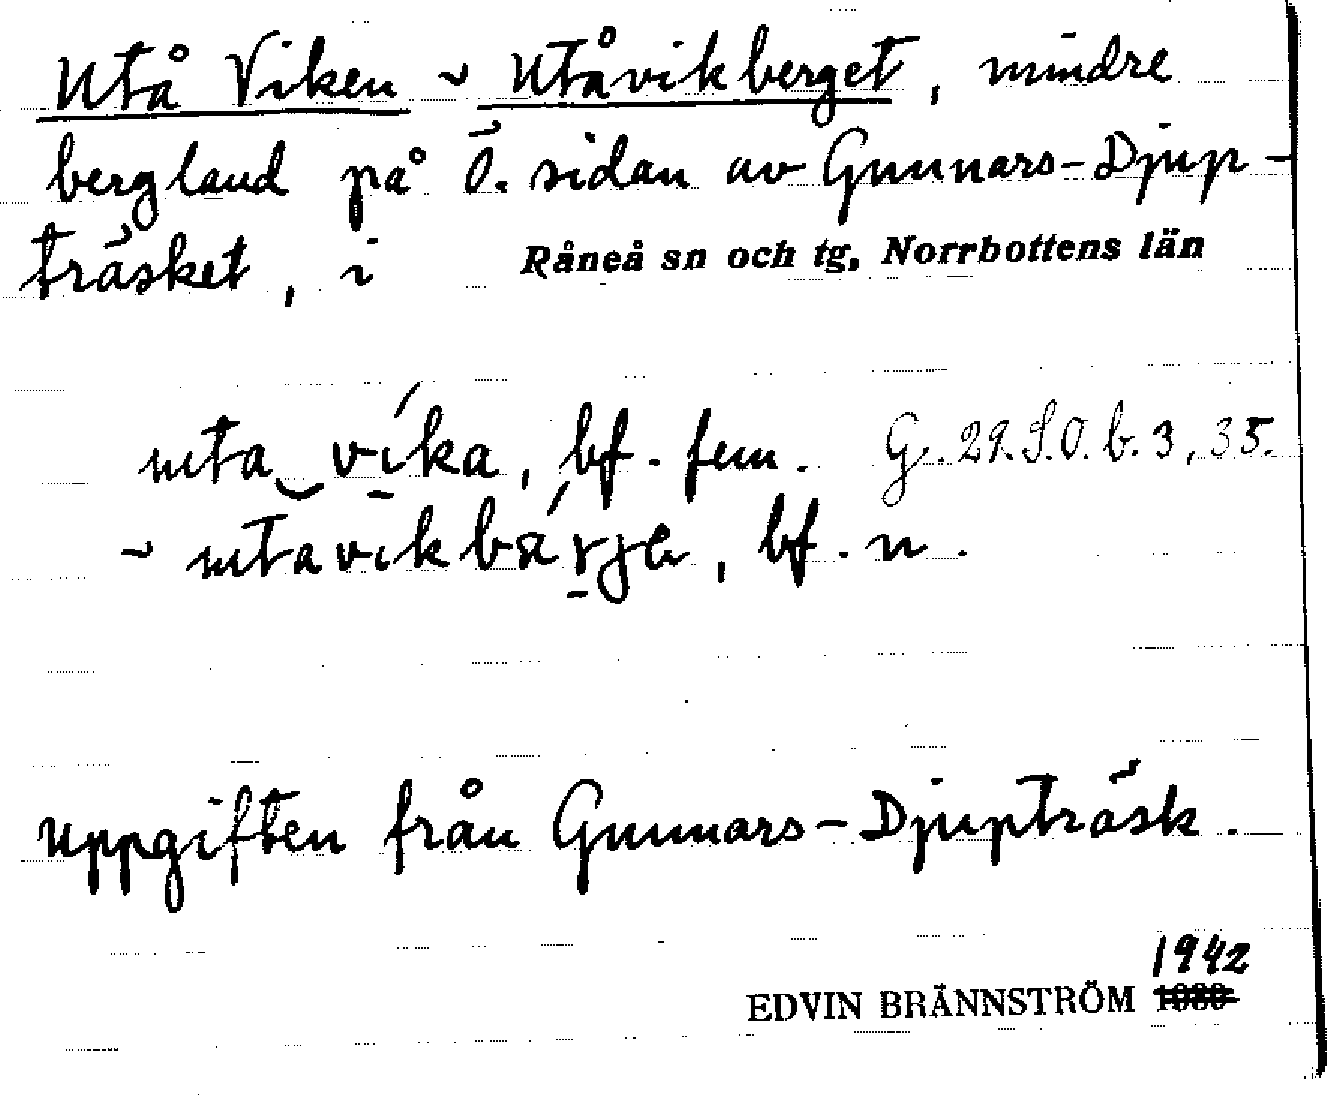 Utå Viken ~ Utåvikberget, mindre
bergland på Ö. sidan av Gunnars-Djup-
träsket, i Råneå sn och tg, Norrbottens län
uta‿vi̱ka, bf. fem. G. 29.S.O.b.3,35.
~ utavikbärje, bf. n.
Uppgiften från Gunnars-Djupträsk.
1942
EDVIN BRÄNNSTRÖM